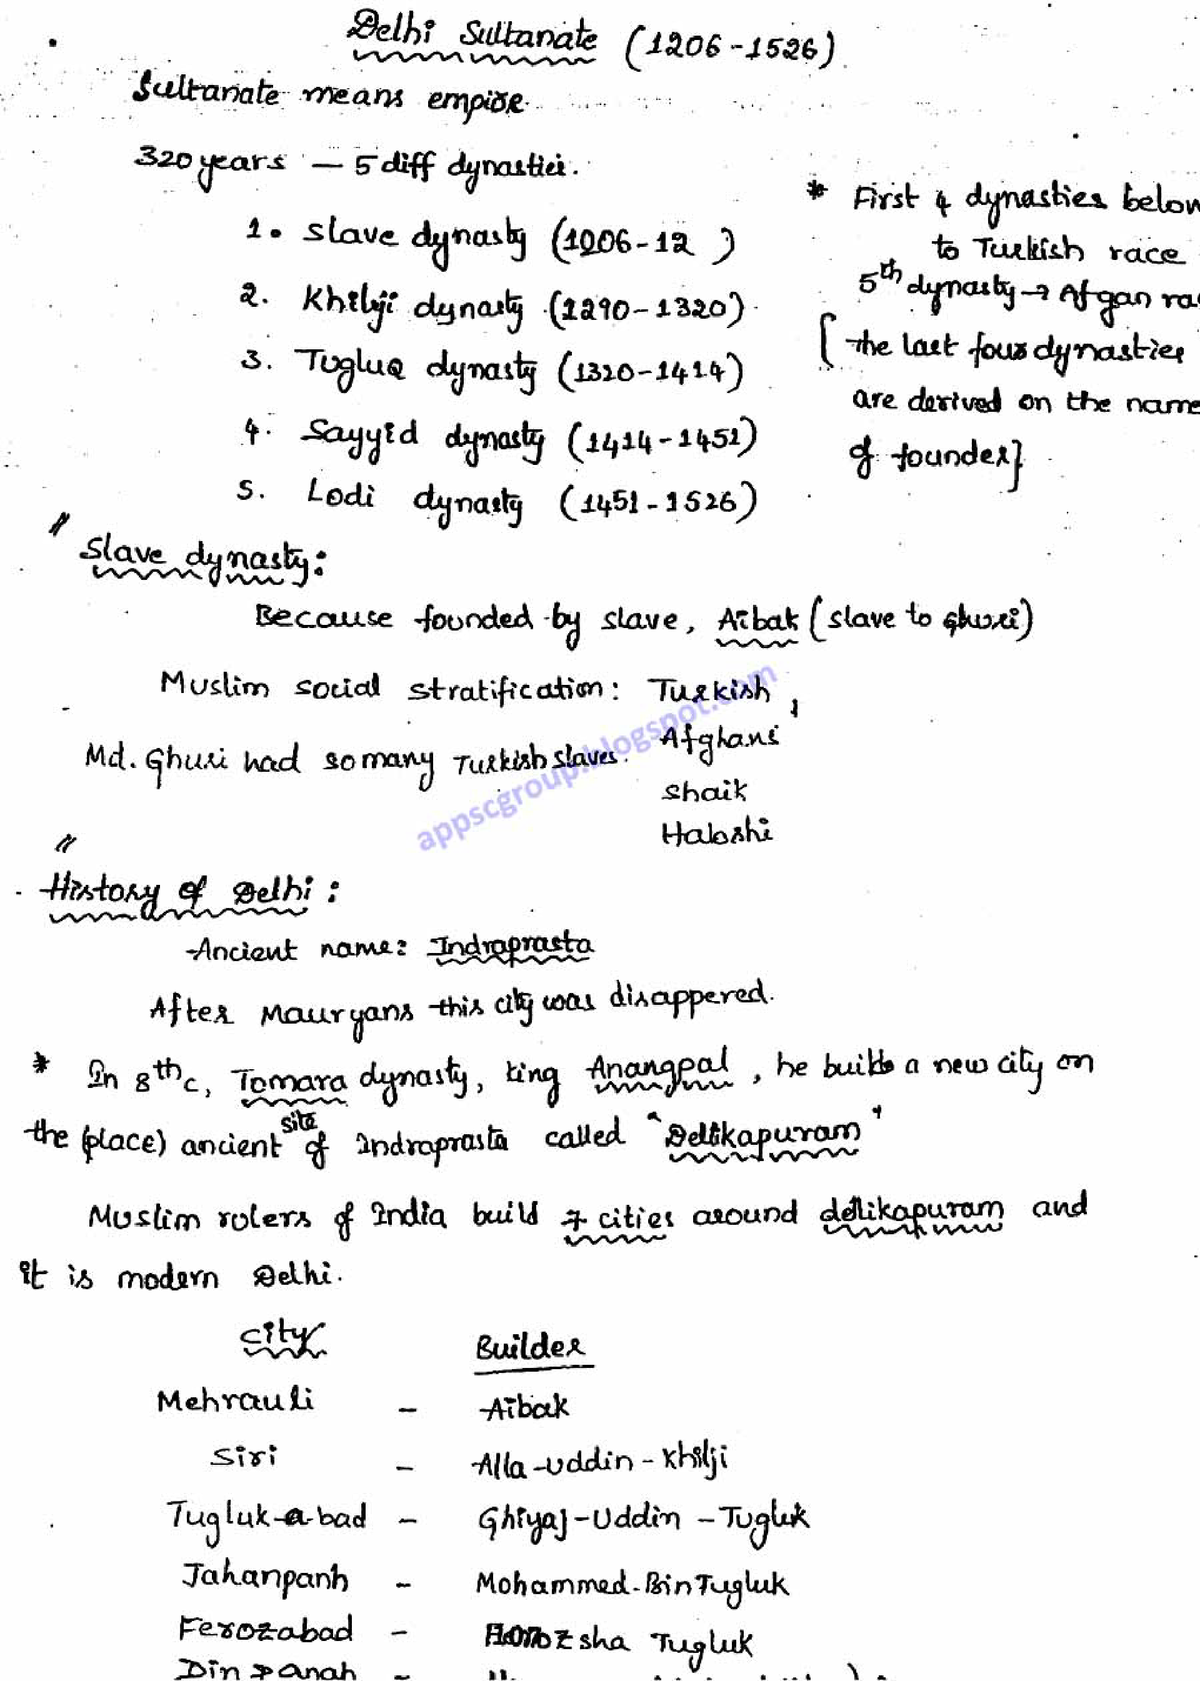 Delhi Sultanate (1206-1526)
Sultanate means empire
320 years - 5 diff dynasties.
1. Slave dynasty (1206-12 )
2. Khilji dynasty (1290-1320)
3. Tugluq dynasty (1320-1414)
4. Sayyid dynasty (1414-1451)
5. Lodi dynasty (1451-1526)
* First 4 dynasties belon
to Turkish race
5th dynasty → Afgan ra
[the last four dynasties
are derived on the name
of founder}
Slave dynasty:
Because founded by slave, Aibak (slave to ghuri)
Muslim social stratification: Turkish,
Afghans
Shaik
Habshi
Md. Ghuri had so many Turkish slaves.
appscgroup.blogspot.com
History of Delhi:
Ancient name: Indraprasta
After Mauryans this city was disappered.
* In 8th c, Tomara dynasty, king Anangpal, he builds a new city on
the (place) ancient site of Indraprasta called "Dellikapuram"
Muslim rulers of India build 7 cities around dellikapuram and
it is modern Delhi.
City Builder
Mehrauli - Aibak
Siri - Alla-uddin-Khilji
Tugluk-a-bad - Ghiyaj-Uddin-Tugluk
Jahanpanh - Mohammed-Bin Tugluk
Ferozabad - sha Tugluk
Din panah -